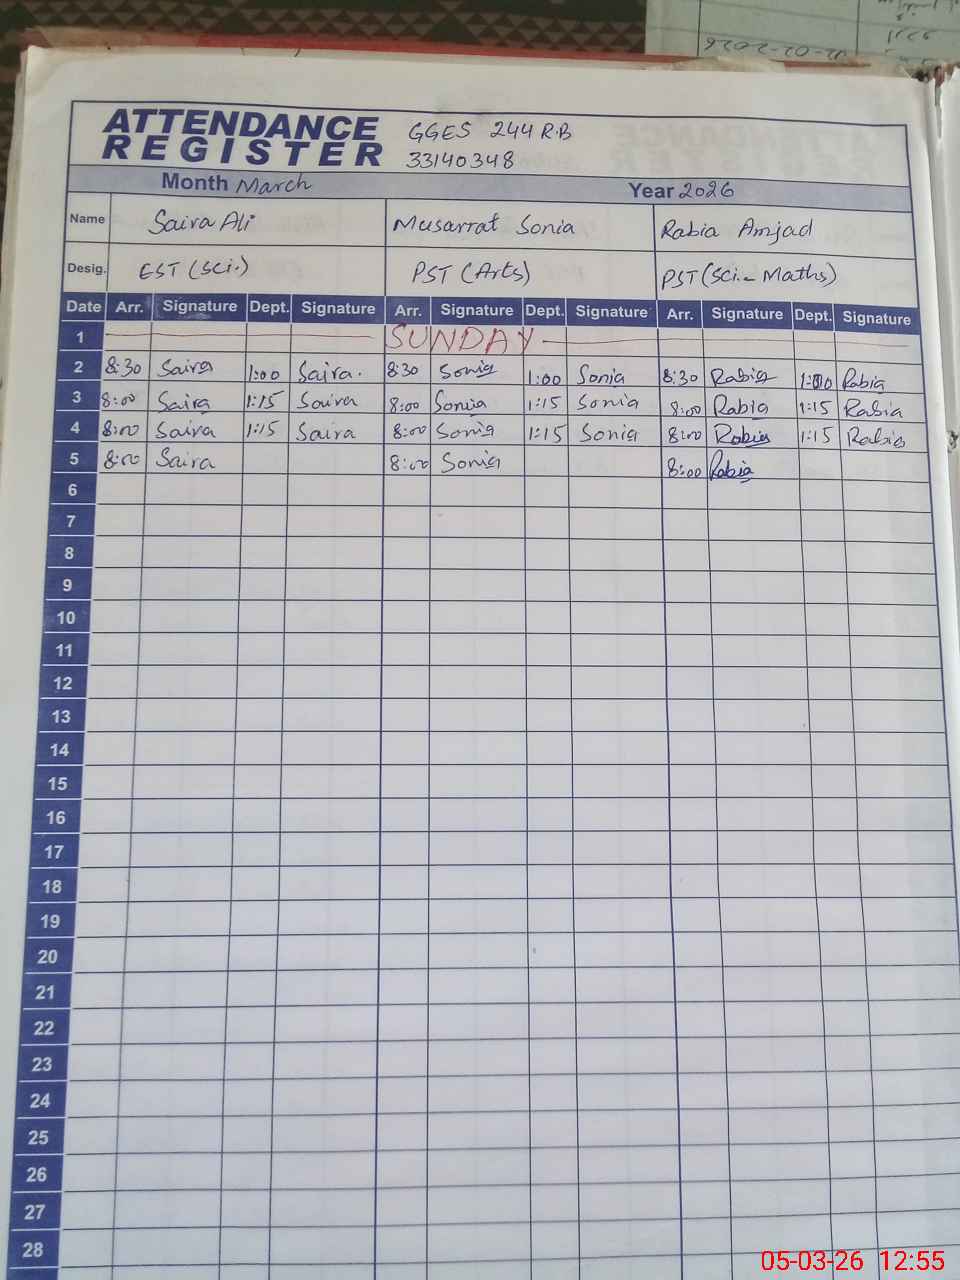 02-02-2026
ATTENDANCE REGISTER
GGES 244 R.B
33140348
Month March Year 2026
Name Saira Ali Musarrat Sonia Rabia Amjad
Desig. EST (Sci.) PST (Arts) PST (Sci - Maths)
Date Arr. Signature Dept. Signature Arr. Signature Dept. Signature Arr. Signature Dept. Signature
1 SUNDAY
2 8:30 Saira 1:00 Saira. 8:30 Sonia 1:00 Sonia 8:30 Rabia 1:00 Rabia
3 8:00 Saira 1:15 Saira 8:00 Sonia 1:15 Sonia 8:00 Rabia 1:15 Rabia
4 8:00 Saira 1:15 Saira 8:00 Sonia 1:15 Sonia 8:00 Rabia 1:15 Rabia
5 8:00 Saira 8:00 Sonia 8:00 Rabia
6
7
8
9
10
11
12
13
14
15
16
17
18
19
20
21
22
23
24
25
26
27
28
05-03-26 12:55